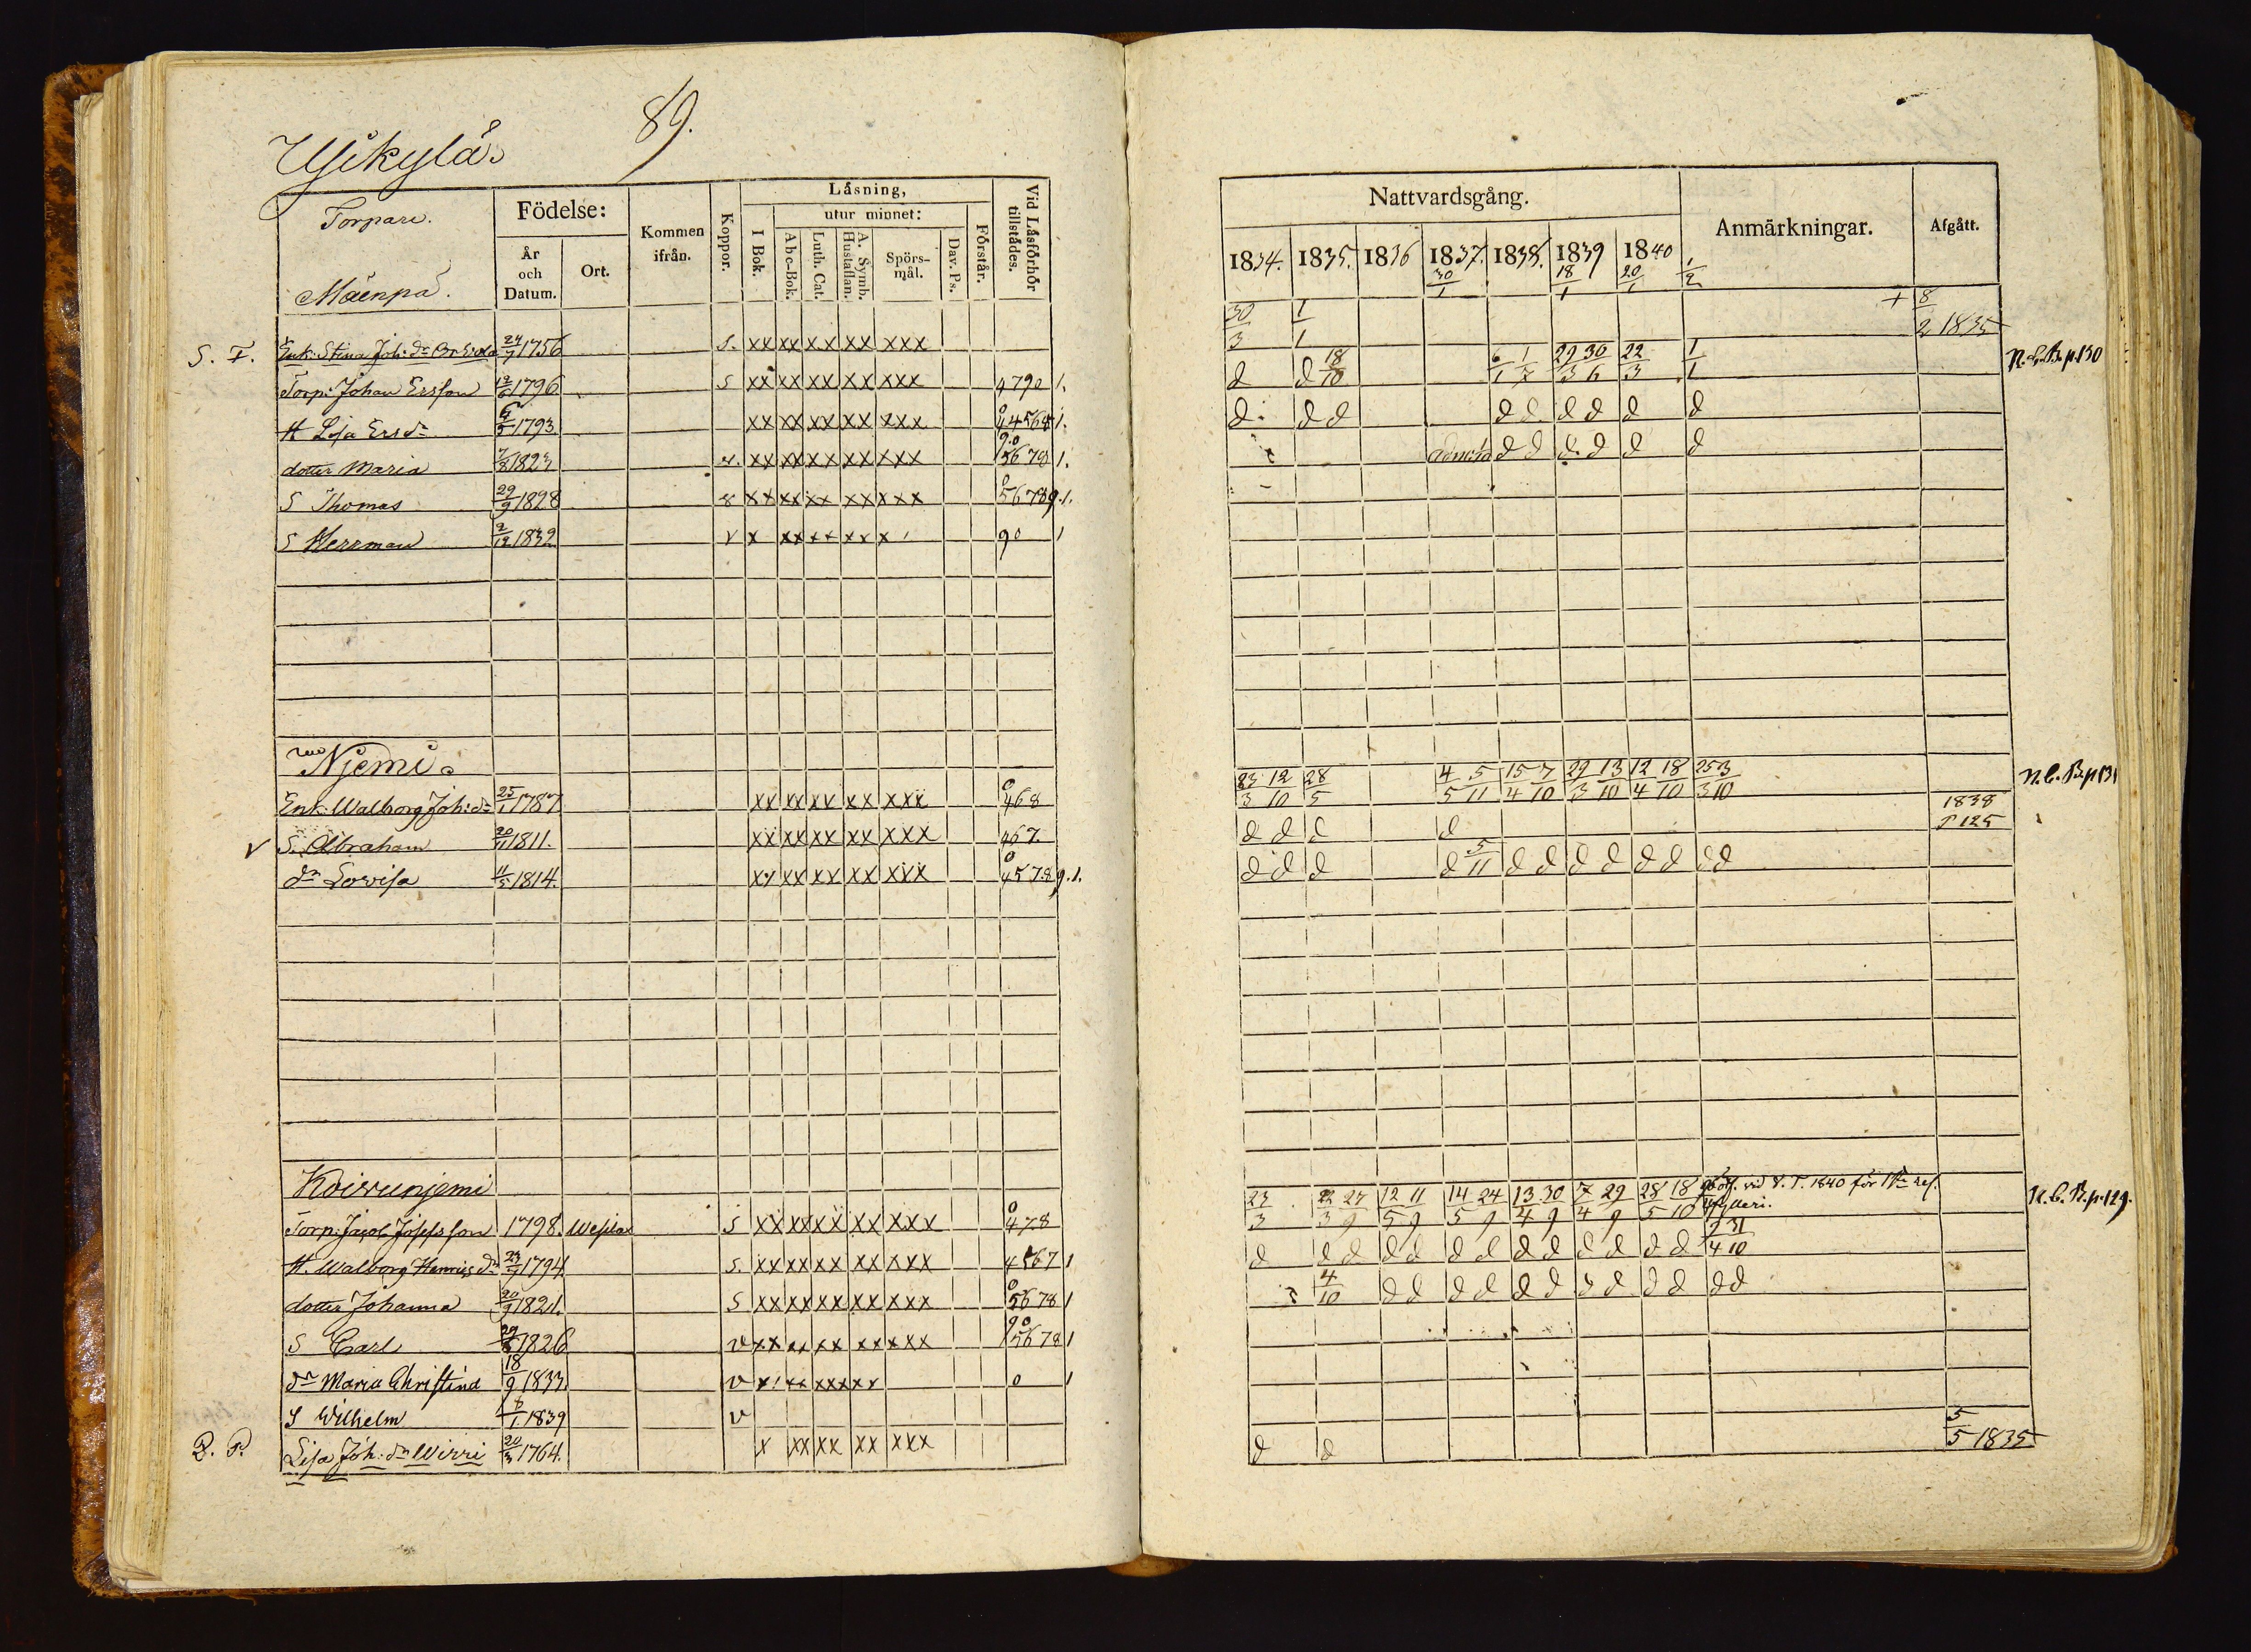 89.
Torpare.
Födelse:
Kommen ifrån.
Koppor.
Låsning,
utur minnet:
I Bok.
Abc-Bok.
Luth. Cat.
A. Symb. Hustaflan.
Spörs-mål.
Dav. Ps.
Förstår.
Vid Låsförhör tillstädes.
År och Datum.
Ort.
Nattvardsgång.
Anmärkningar.
Afgått.
1834. 1835. 1836 1837. 1838. 1839 1840
30/1 18/1 20/1 1/2
Mäenpä.
S. F. Enk: Stina Joh: dr 24/7 1756 S. xx xx xx xx xxx 30/3 1/1 + 8/2 1835
Torp: Johan Ersson 1796 S xx xx xx xx xxx 4790 1. d d 18/10 6/1 1/7 29/3 30/6 22/3 1/1 N.C.B. p. 130
H Lisa Ersdr 1793 xx xx xx xx xxx 1. d d d d d d d d d
dotter Maria 1823 xx xx xx xx xxx 5678 1. d d d d d d
S Thomas 29/9 1828 xx xx xx xx xxx 56789.1.
S Herrman 2/12 1832 v x xx xx xx x 90 1
Njemi
Enk: Walborg Joh: dr 25/1 1787 xx xx xx xx xxx 468 23/3 12/10 28/5 4/5 5/11 15/4 7/10 29/3 13/10 12/4 18/10 25/3 3/10 N.C.B. p 131
v S. Abraham 1811. xx xx xx xx xxx 467. d d d d 1838 p 125
dr Lovisa 11/5 1814. xx xx xx xx xxx 4578 9.1. d d d d 5/11 d d d d d d d d
Koivunjemi
Torp: Jacob Josefsson 1798. S xx xx xx xx xxx 478 23/3 12/5 11/9 14/5 24/9 13/4 30/9 7/4 29/9 28/5 18/10 vid V.T. 1840 för N.C.B. p. 129.
H. Walborg Henricsdr 23/7 1794. S. xx xx xx xx xxx 4567 1 d d d d d d d d d d d d d
dotter Johanna 20/9 1821. S xx xx xx xx xxx 5678 1 4/10 d d d d d d d d d d d d
S Carl 1826 v xx xx xx xx xxx 5678 1
dr Maria Christina 18/9 1833. v 0 1
S Wilhelm 1839 v
Q. P. Lisa Joh: dr Wirri 20/3 1764. x xx xx xx xxx d d 5/5 1835